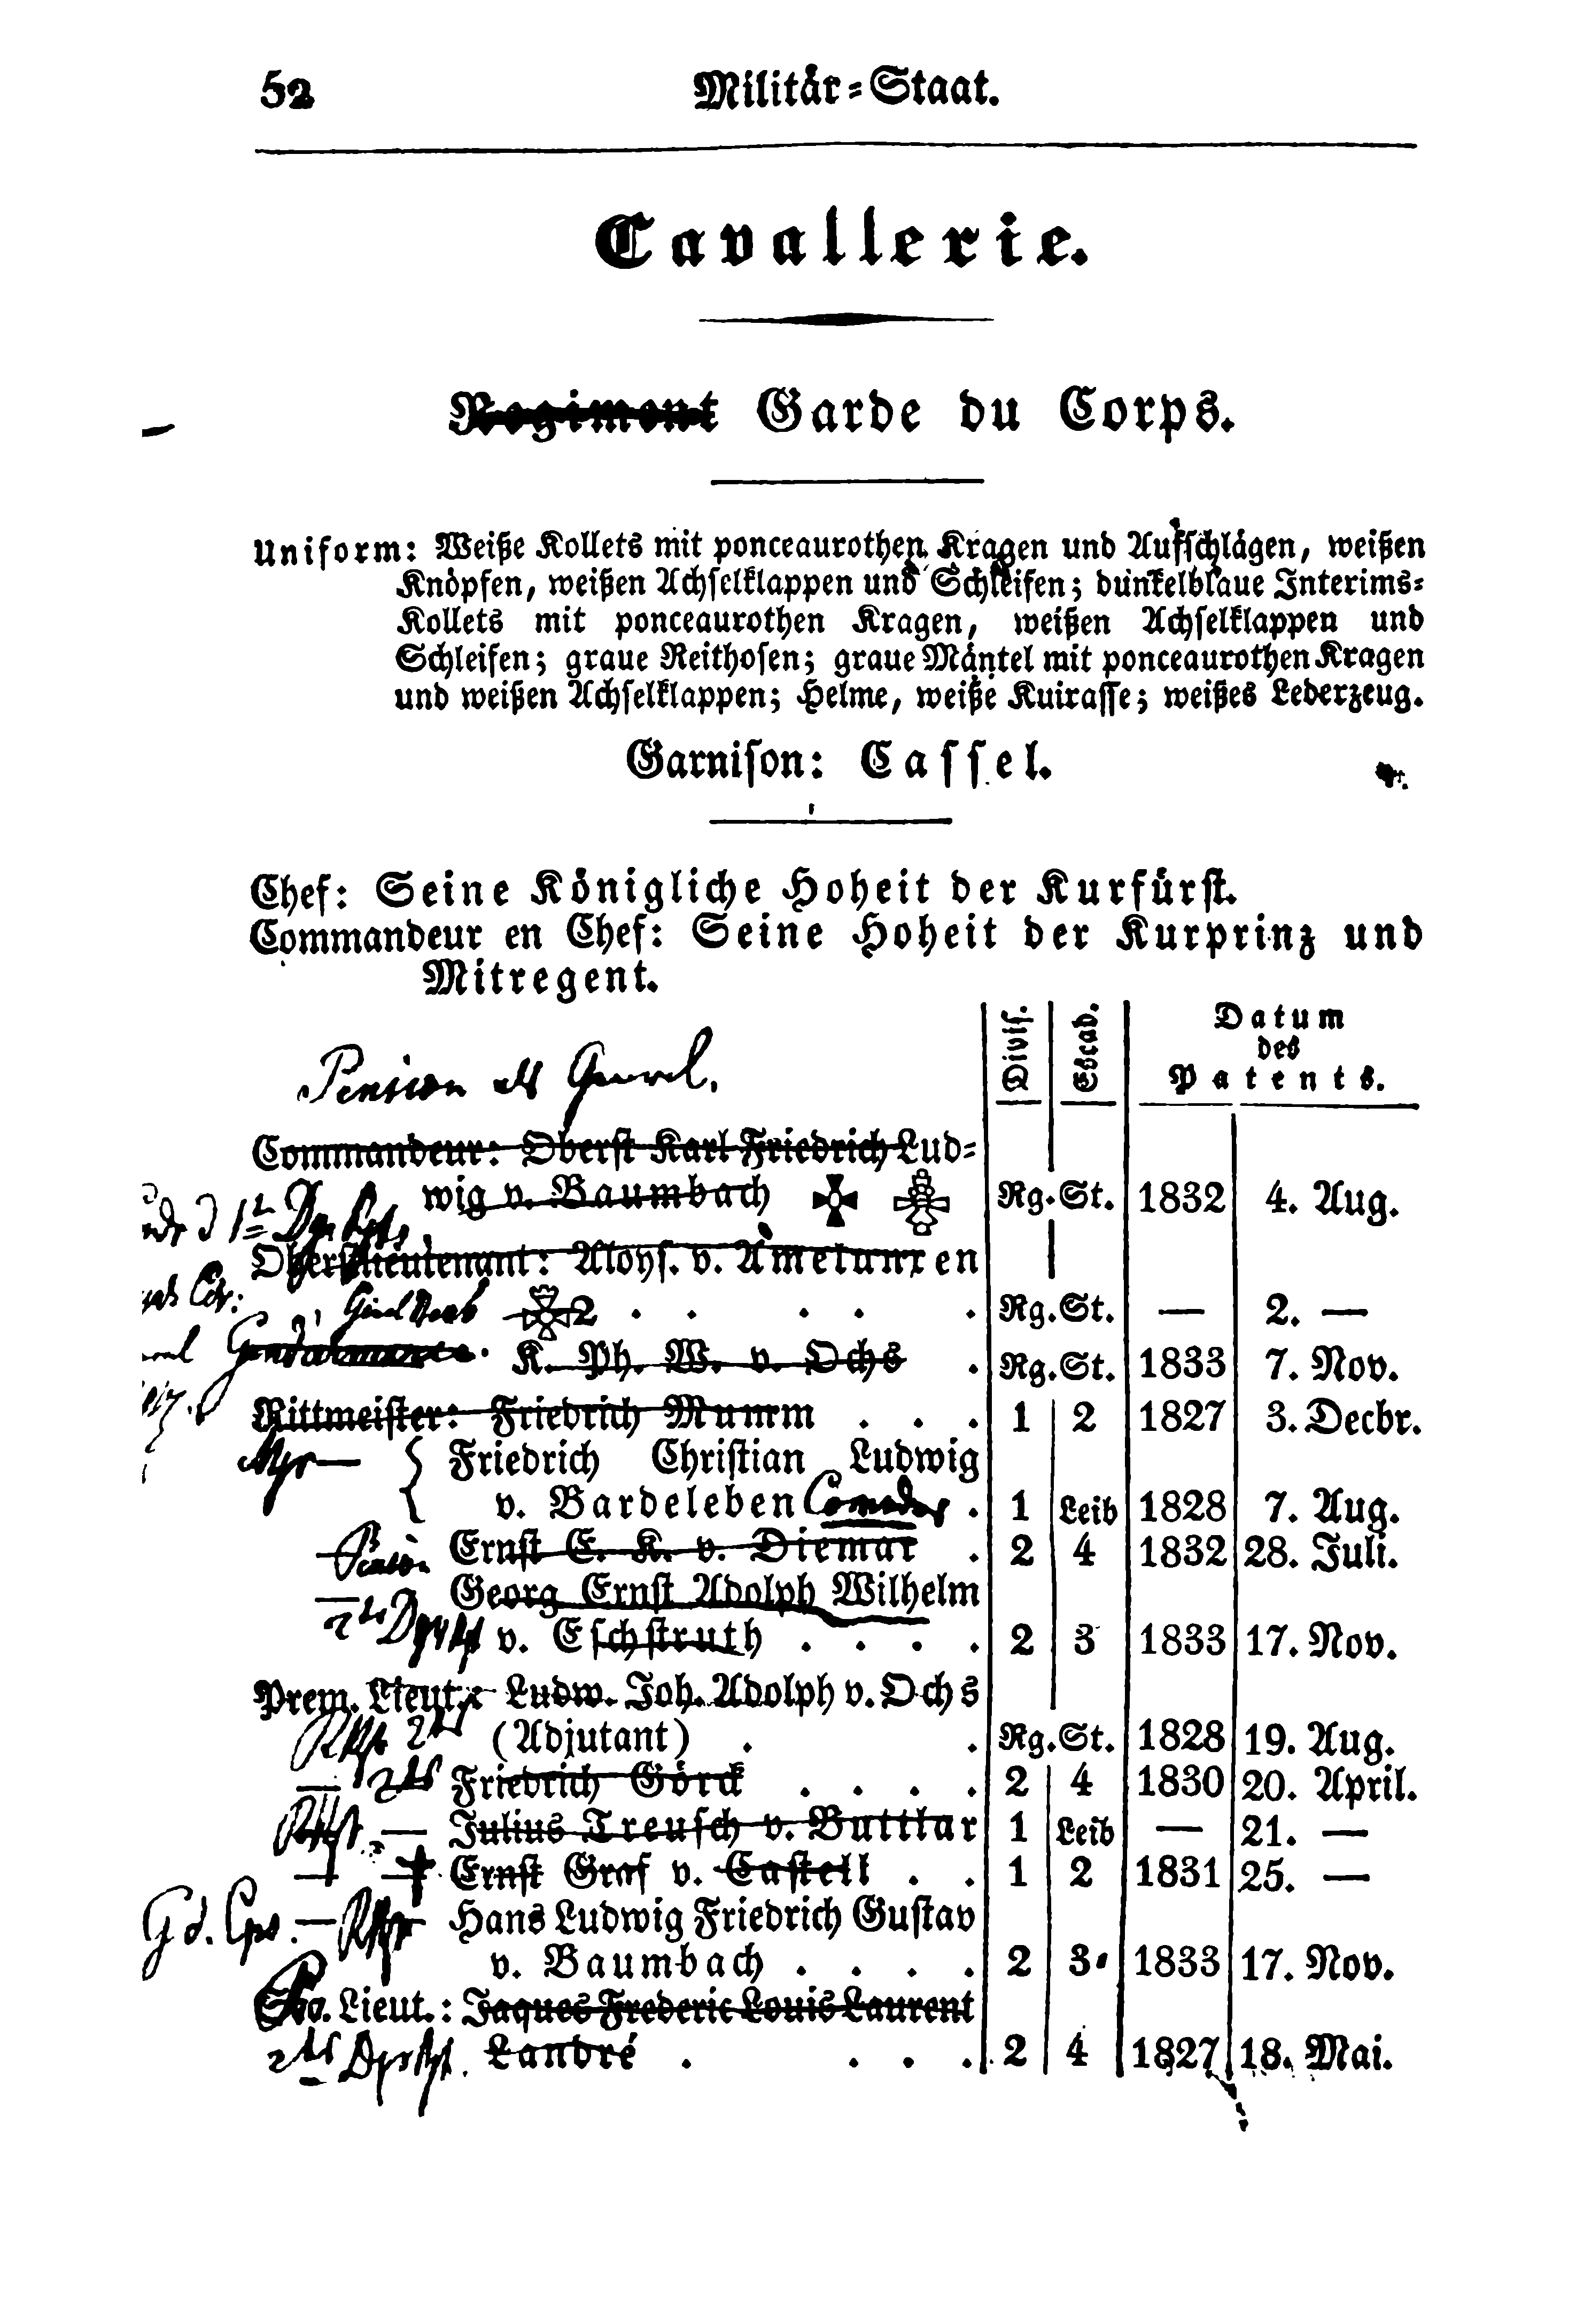 52 Militär-Staat.
Cavallerie.
Regiment Garde du Corps.
Uniform: Weiße Kollets mit ponceaurothen Kragen und Aufschlägen, weißen
Knöpfen, weißen Achselklappen und Schleifen; dunkelblaue Interims-
Kollets mit ponceaurothen Kragen, weißen Achselklappen und
Schleifen; graue Reithosen; graue Mäntel mit ponceaurothen Kragen
und weißen Achselklappen; Helme, weiße Kuirasse; weißes Lederzeug.
Garnison: Cassel.
Chef: Seine Königliche Hoheit der Kurfürst.
Commandeur en Chef: Seine Hoheit der Kurprinz und
Mitregent.
Divis. Escad. Datum
des
Patents.
Pension als
Commandeur: Oberst Karl Friedrich Lud-
wig v. Baumbach Rg.St. 1832 4. Aug.
Oberstlieutenant: Aloys. v. Amelunxen
2 . . . . . Rg.St. — 2. —
K. Ph. W. v. Ochs . Rg.St. 1833 7. Nov.
Rittmeister: Friedrich Mumm . . . 1 2 1827 3. Decbr.
Friedrich Christian Ludwig
v. Bardeleben . 1 Leib 1828 7. Aug.
Pension Ernst E. K. v. Diemar . 2 4 1832 28. Juli.
Georg Ernst Adolph Wilhelm
v. Eschstruth . . . . 2 3 1833 17. Nov.
Prem. Lieut.: Ludw. Joh. Adolph v. Ochs
(Adjutant) . . Rg.St. 1828 19. Aug.
Friedrich Görck . . . . 2 4 1830 20. April.
— Julius Treusch v. Buttlar 1 Leib — 21. —
— Ernst Graf v. Castell . . 1 2 1831 25. —
Hans Ludwig Friedrich Gustav
v. Baumbach . . . . 2 3 1833 17. Nov.
Lieut.: Jaques Frederic Louis Laurent
Landré . . . . 2 4 1827 18. Mai.